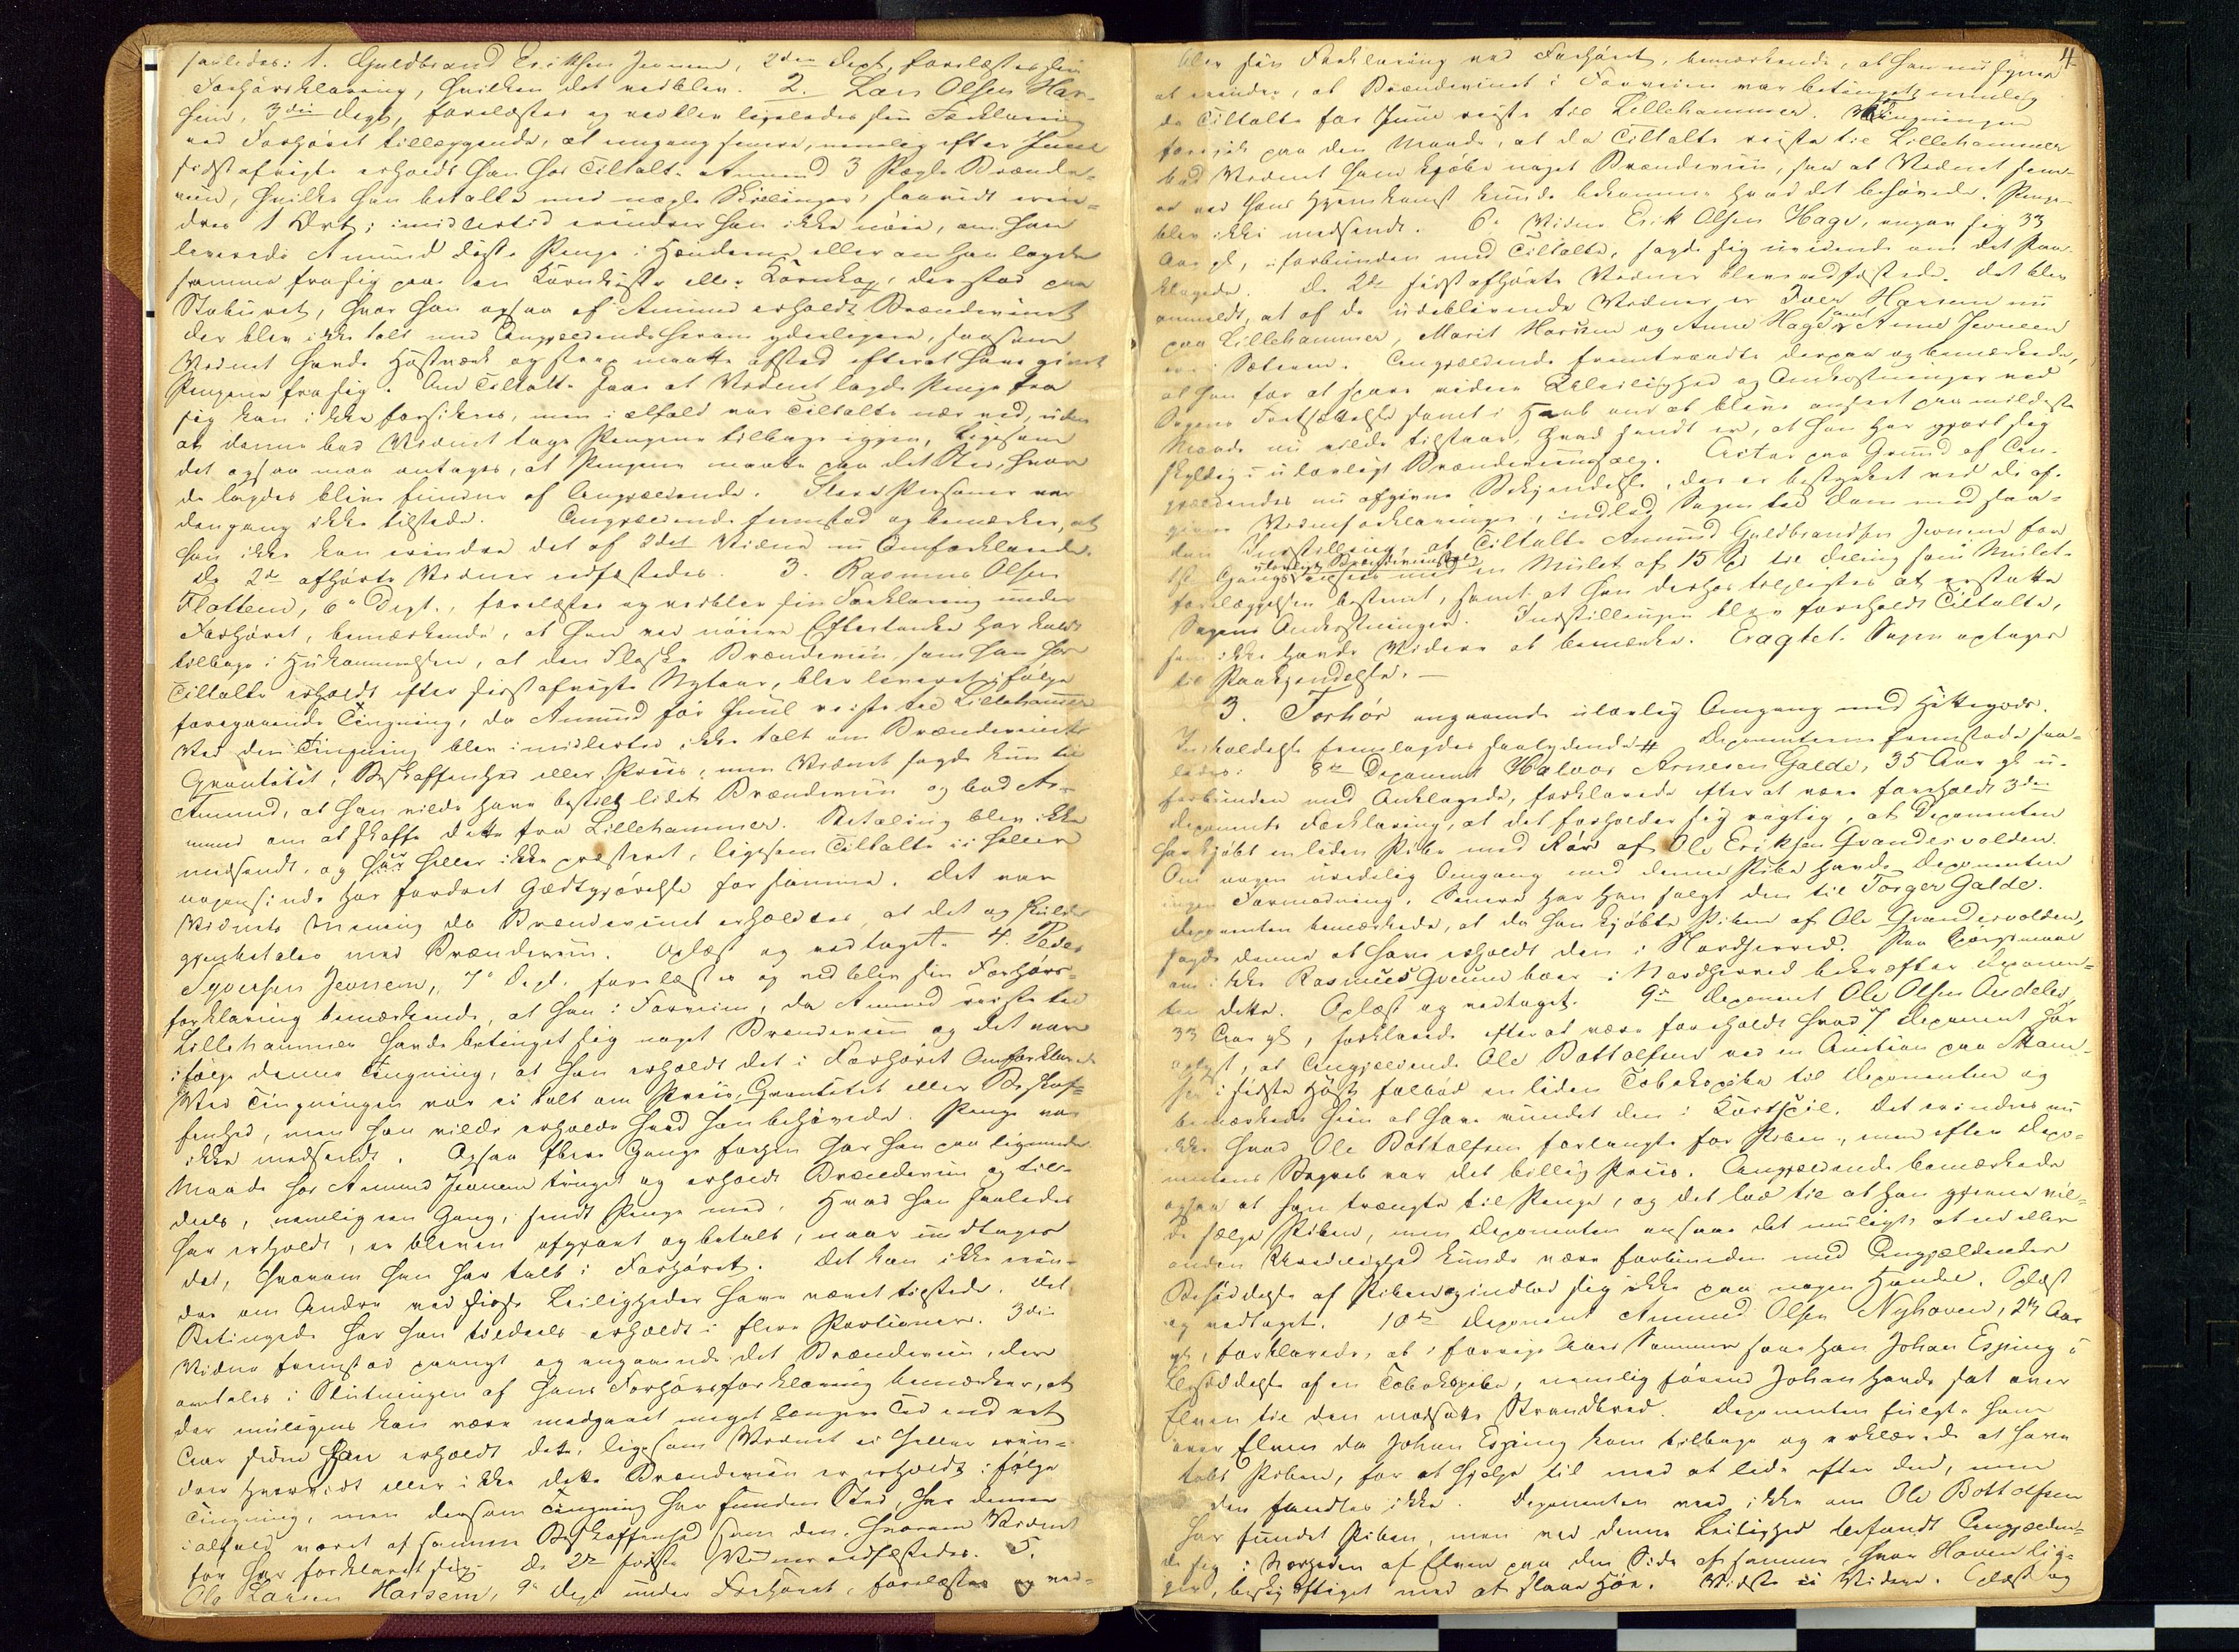 saaledes: 1. Guldbrand Eriksen Jevnem, 2den Dept, forelæstes sin
Forhørsklaring, hvilken det vedblev. 2. Lars Olsen Har-
sem, 3die Dept, forelæstes og vedblev ligeledes sin Forklaring
ved Forhøret tillæggende, at engang senere, nemlig efter Juul
sidstafvigte erholdt han hos Tiltalte Amund 3 Pægle Brænde-
viin, hvilke han betalte med nogle Skillinger, saavidt erin-
dres 1 Ort; imidlertid erindrer han ikke nøie, om han
leverede Amund disse Penge i Hænderne eller om han lagde
samme fra sig paa en Kornkiste eller Kornkop, der stod paa
Staburet, hvor han ogsaa af Amund erholdt Brændevinet
der blev ikke talt med Angjældende herom yderligere, saasom
Vidnet havde Hastværk og strax maatte afsted efterat have givet
Pengene fra sig. Om Tiltalte saae at Vidnet lagde Penge fra
sig kan ikke forsikres, men i alfald var Tiltalte nær ved, uden
at denne bad Vidnet tage Pengene tilbage igjen, ligesom
det ogsaa maa antages, at Pengene maatte paa det Sted, hvor
de lagdes blive fundne af Angjældende. Flere Personer var
dengang ikke tilstede. Angjældende fremstod og bemærker, at
han ikke kan erindre det af 2det Vidne nu Omforklarede.
De 2de afhørte Vidner edfæstedes. 3. Rasmus Olsen
Flottem, 6te Dept., forelæstes og vedblev sin Forklaring under
Forhøret, bemærkende, at han ved nøiere Eftertanke har kaldt
tilbage i Hukommelsen, at den Flaske Brændeviin som han hos
Tiltalte erholdt efter sidstafvigte Nytaar, blev leveret ifølge
foregaaende Tingning, da Amund før Juul reiste til Lillehammer
Ved den Tingning blev imidlertid ikke talt om Brændevinets
Qvantitet, Beskaffenhed eller Priis, men Vidnet sagde kun til
Amund, at han vilde have bestilt lidt Brændeviin og bad A-
mund om at skaffe dette fra Lillehammer. Betaling blev ikke
medsendt, og har heller ikke præsteret, ligesom Tiltalte ei heller
nogensinde har fordret Godtgjørelse for samme. Det var
Vidnets Mening da Brændevinet erholdtes, at det og skulde
gjenbetales med Brændeviin. Oplæst og vedtaget. 4. Peder
Syversen Jevnem, 7de Dept. forelæstes og vedblev sin Forhørs-
forklaring bemærkende, at han i Forveien, da Amund reiste til
Lillehammer havde betinget sig noget Brændeviin og det var
ifølge denne Tingning, at han erholdt det i Forhøret Omforklarede
Ved Tingningen var ei talt om Priis, Qvantitet eller Beskaf-
fenhed, men han vilde erholde hvad han behøvede. Penge var
ikke medsendt. Ogsaa flere Gange forhen har han paa lignende
Maade hos Amund Jevnem tinget og erholdt Brændeviin og til-
deels, nemlig een Gang, sendt Penge med. Hvad han saaledes
har erholdt, er bleven afgjort og betalt, naar undtages
det, hvorom han har talt i Forhøret. Det kan ikke erin-
dres om Andre ved disse Leiligheder have været tilstede. Det
Betingede har han tildeels erholdt i flere Portioner. 3die
Vidne fremstod paanyt og angaaende det Brændeviin, der
omtales i Slutningen af hans Forhørsforklaring bemærker, at
der muligens kan være medgaaet meget længere Tid end et
Aar siden han erholdt det, ligesom Vidnet ei heller erin-
drer hvorvidt eller ikke dette Brændeviin er erholdt ifølge
Tingning, men dersom Tingning har funden Sted, har denne
ialfald været af samme Beskaffenhed som den, hvorom Vidnet
før har forklaret sig. De 2de sidste Vidner edfæstedes. 5.
Ole Larsen Harsem, 9de Dept under Forhøret, forelæstes og ved-
4
blev sin Forklaring ved Forhøret, bemærkende, at han nu synes
at erindre, at Brændevinet i Forveien var betinget nemlig
da Tiltalte før Juul reiste til Lillehammer. Tingningen
foregik paa den Maade, at da Tiltalte reiste til Lillehammer
bad Vidnet ham kjøbe noget Brændeviin, saa at Vidnet sene-
re ved hans Hjemkomst kunde bekomme hvad det behøvede. Penge
blev ikke medsendt. 6. Vidne Erik Olsen Hage, angav sig 33
Aar gl, uforbunden med Tiltalte, sagde sig uvidende om det paa-
klagede. De 2de sidst afhørte Vidner bleve edfæstede. Det blev
anmeldt, at af de udeblivende Vidner er Iver Harsem nu
paa Lillehammer, Marit Harsem og Anne Hage samt Anne Jevnem
ere i Sæteren. Angjældende fremtraadte derpaa og bemærkede,
at han for at spare videre Uleilighed og Omkostninger ved
Sagens Fortsættelse samt i Haab om at blive anseet paa mildeste
Maade nu vilde tilstaae, hvad sandt er, at han har gjort sig
skyldig i ulovligt Brændeviinssalg. Actor paa Grund af An-
gjældendes nu afgivne Bekjendelse, der er bestyrket ved de af-
givne Vidneforklaringer, indlod Sagen til Dom med saa-
dan Indstilling, at Tiltalte Amund Guldbrandsen Jevnem for
1ste Gangs ulovligt Brændeviinssalg en Mulct af 15 Spd til Deling som Mulct-
forelæggelsen bestemt, samt at han derhos tilpligtes at erstatte
Sagens Omkostninger. Indstillingen blev foreholdt Tiltalte,
som ikke havde Videre at bemærke. Eragtet. Sagen optages
til Paakjendelse. —
3. Forhør angaaende ulovlig Omgang med Hittegods.
Indkaldelse fremlagdes saalydende # Deponenterne fremstode saa-
ledes: 8de Deponent Halvor Arnesen Galde, 35 Aar gl u-
forbunden med Anklagede, forklarede efter at være foreholdt 3die
Deponents Forklaring, at det forholder sig rigtig, at Deponenten
har kjøbt en liden Pibe med Rør af Ole Eriksen Grandesvolden.
Om nogen uredelig Omgang med denne Pibe havde Deponenten
ingen Formodning. Senere har han solgt den til Torger Galde.
Deponenten bemærkede, at da han kjøbte Piben af Ole Grandesvolden,
sagde denne at have erholdt den i Nordherred. Paa Spørgsmaal
om ikke Rasmus Greum boer i Nordherred bekræfter Deponen-
ten dette. Oplæst og vedtaget. 9de Deponent Ole Olsen Ardelid,
33 Aar gl, forklarede efter at være foreholdt hvad 7 Deponent har
oplyst, at Angjældende Ole Bottolfsen ved en Auction paa Skam-
 i sidste Høst falbød en liden Tobakspibe til Deponenten og
bemærkede hiin at have vundet den i Kortspil. Det erindres nu
ikke hvad Ole Bottolfsen forlangte for Piben, men efter Depo-
nentens Begreb var det billig Priis. Angjældende bemærkede
ogsaa at han trængte til Penge, og det lod til at han gjerne vil-
de sælge Piben, men Deponenten ansaae det muligt, at en eller
anden Uredelighed kunde være forbunden med Angjældendes
Besiddelse af Piben og indlod sig ikke paa nogen Handel. Oplæst
og vedtaget. 10de Deponent Amund Olsen Nyhoven, 24 Aar
gl, forklarede, at i forrige Aars Sommer saae han Johan Esping i
Besiddelse af en Tobakspibe, nemlig førend Johan havde sat over
Elven til den modsatte Strandbred. Deponenten fulgte ham
over Elven da Johan Esping kom tilbage og erklærede at have
tabt Piben, for at hjelpe til med at lede efter den, men
den fandtes ikke. Deponenten veed ikke om Ole Bottolfsen
har fundet Piben, men ved denne Leilighed befandt Angjælden-
de sig i Nærheden af Elven paa den Side af samme, hvor Hoven lig-
ger, beskjæftiget med at slaae Hø. Vidste ei Videre. Oplæst og